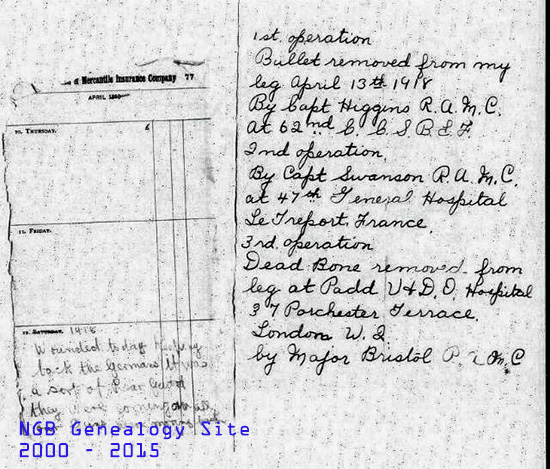 Mercantile Insurance Company 77
APRIL
10. THURSDAY. 6
11. FRIDAY.
12. SATURDAY. 1918
Wounded today
back the Germans It was
a sort of Rear Guard
they were coming
NGB Genealogy Site
2000 - 2015
1st. operation
Bullet removed from my
leg April 13th 1918
By Capt Higgins R.A.M.C.
at 62nd C.C.S B.E.F.
2nd operation.
By Capt Swanson R.A.M.C.
at 47th General Hospital
Le Treport. France.
3rd. operation
Dead Bone removed from
leg at Padd V.A.D. Hospital
37 Porchester Terrace.
London W.2
by Major Bristol R A M C